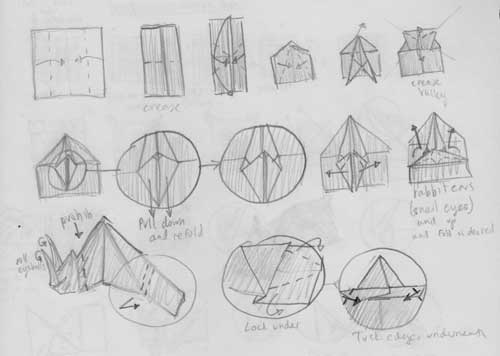 crease
crease
valley
Pull down
and refold
rabbit ears
(snail eyes)
and up
and fold as desired
push in
roll
eyeballs
Lock under
Tuck edges underneath